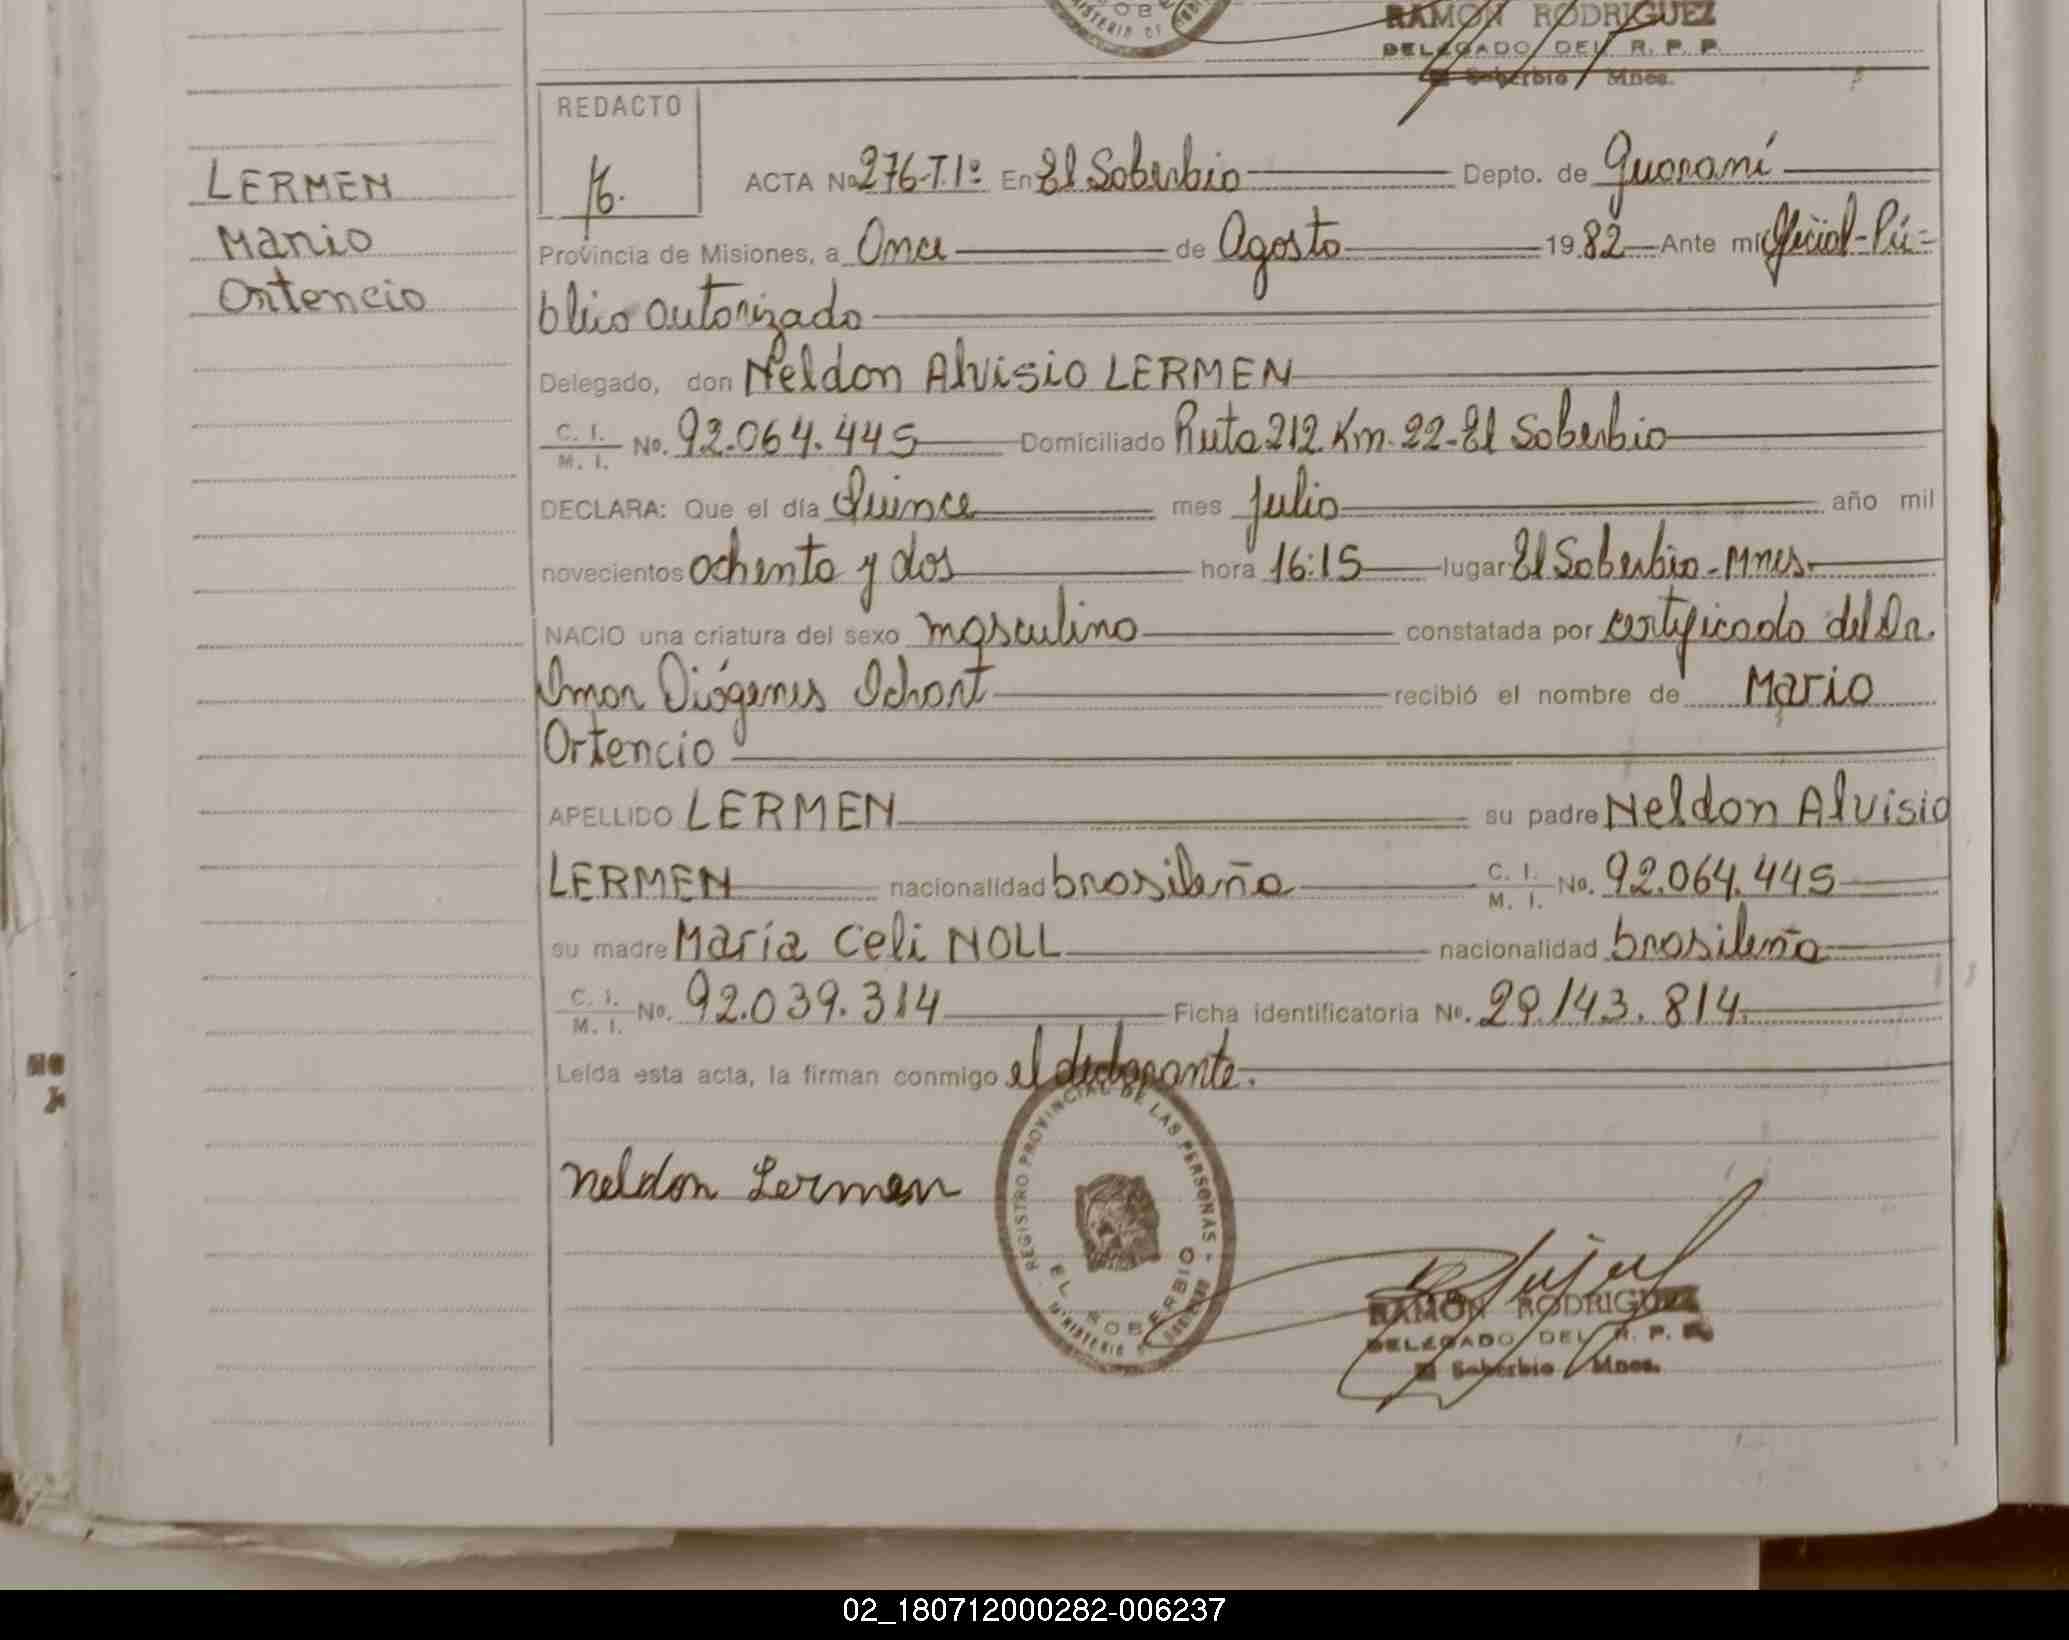 RAMON RODRIGUEZ
DELEGADO DEL R. P. P.
El Soberbio Mnes.
REDACTO
LERMEN
Mario
Ortencio
ACTA No. 276-T.1º En El Soberbio Depto. de Guaraní
Provincia de Misiones, a Once de Agosto 1982 Ante mí Oficial-Pú=
blico autorizado
Delegado, don Neldon Alvisio LERMEN
C. I. / M. I. No. 92.064.445 Domiciliado Ruta 212 Km. 22-El Soberbio
DECLARA: Que el día Quince mes Julio año mil
novecientos ochenta y dos hora 16:15 lugar El Soberbio-Mnes.
NACIO una criatura del sexo masculino constatada por certificado del Dr.
Omar Diógenes Ichart recibió el nombre de Mario
Ortencio
APELLIDO LERMEN su padre Neldon Alvisio
LERMEN nacionalidad brasileña C. I. / M. I. No. 92.064.445
su madre María Celi NOLL nacionalidad brasileña
C. I. / M. I. No. 92.039.314 Ficha identificatoria No. 29.143.814.
Leída esta acta, la firman conmigo el declarante.
Neldon Lermen
REGISTRO PROVINCIAL DE LAS PERSONAS - EL SOBERBIO
MINISTERIO DE GOBIERNO
RAMON RODRIGUEZ
DELEGADO DEL R. P. P.
El Soberbio Mnes.
02_180712000282-006237